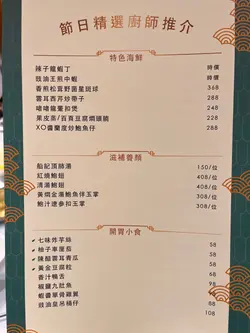 節日精選廚師推介
特色海鮮
辣子龍蝦丁 時價
豉油王煎中蝦 時價
香煎松茸野菌星斑球 368
雲耳西芹炒帶子 288
啫啫龍躉扣煲 248
果皮蒸/百頁豆腐燜頭腩 228
XO醬蘭度炒鮑魚仔 288
滋補養顏
船記頂肺湯 150/位
紅燒鮑翅 408/位
清湯鮑翅 408/位
黃燜金湯鮑魚伴玉掌 308/位
鮑汁遼參扣玉掌 308/位
開胃小食
✓七味炸芋絲 58
✓柚子車厘茄 58
✓陳醋雲耳青瓜 58
✓黃金豆腐粒 58
香汁鴨舌 58
椒鹽九肚魚 88
蝦醬單骨雞翼 88
豉油皇吊桶仔 108